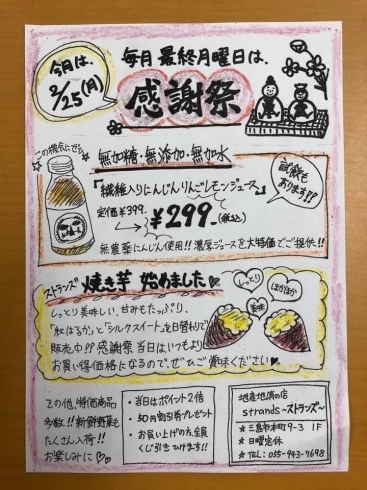 今月は、
2/25(月)
毎月 最終月曜日は、
感謝祭
この機会にぜひ
無加糖・無添加・無加水
「繊維入りにんじんりんごレモンジュース」
定価¥399.
¥299-(税込)
試飲も
おります!!
無農薬にんじん使用!! 濃厚ジュースを大特価でご提供!!
ストランズ 焼き芋 始めました♡
しっとり美味しい、甘みもたっぷり、
「紅はるか」と「シルクスイート」を日替わりで
販売中!? 感謝祭 当日はいつもより
お買い得価格になるので、ぜひご賞味ください♡
しっとり
ほかほか
美味
その他、特価商品
多数!! 新鮮野菜も
たくさん入荷!!
お楽しみに♡
・当日はポイント2倍
・50円割引券プレゼント
・お買い上げの方、全員
くじ引きできます!!
地産地消の店
strands ~ストランズ~
☆三島市本町9-3 1F
☆日曜定休
☆TEL: 055-943-7698